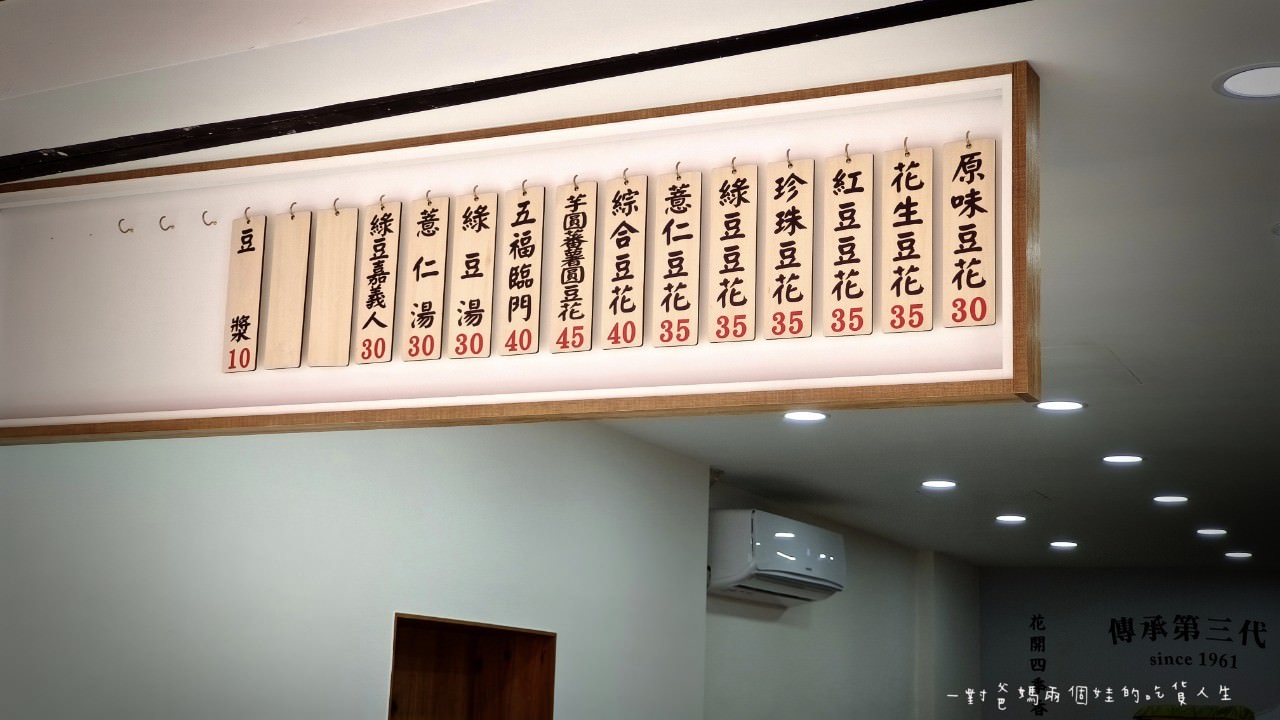 原味豆花 30
花生豆花 35
紅豆豆花 35
珍珠豆花 35
綠豆豆花 35
薏仁豆花 35
綜合豆花 40
芋圓蕃薯圓豆花 45
五福臨門 40
綠豆湯 30
薏仁湯 30
綠豆嘉義人 30
豆漿 10
傳承第三代
since 1961
花開四季春
一對爸媽兩個娃的吃貨人生